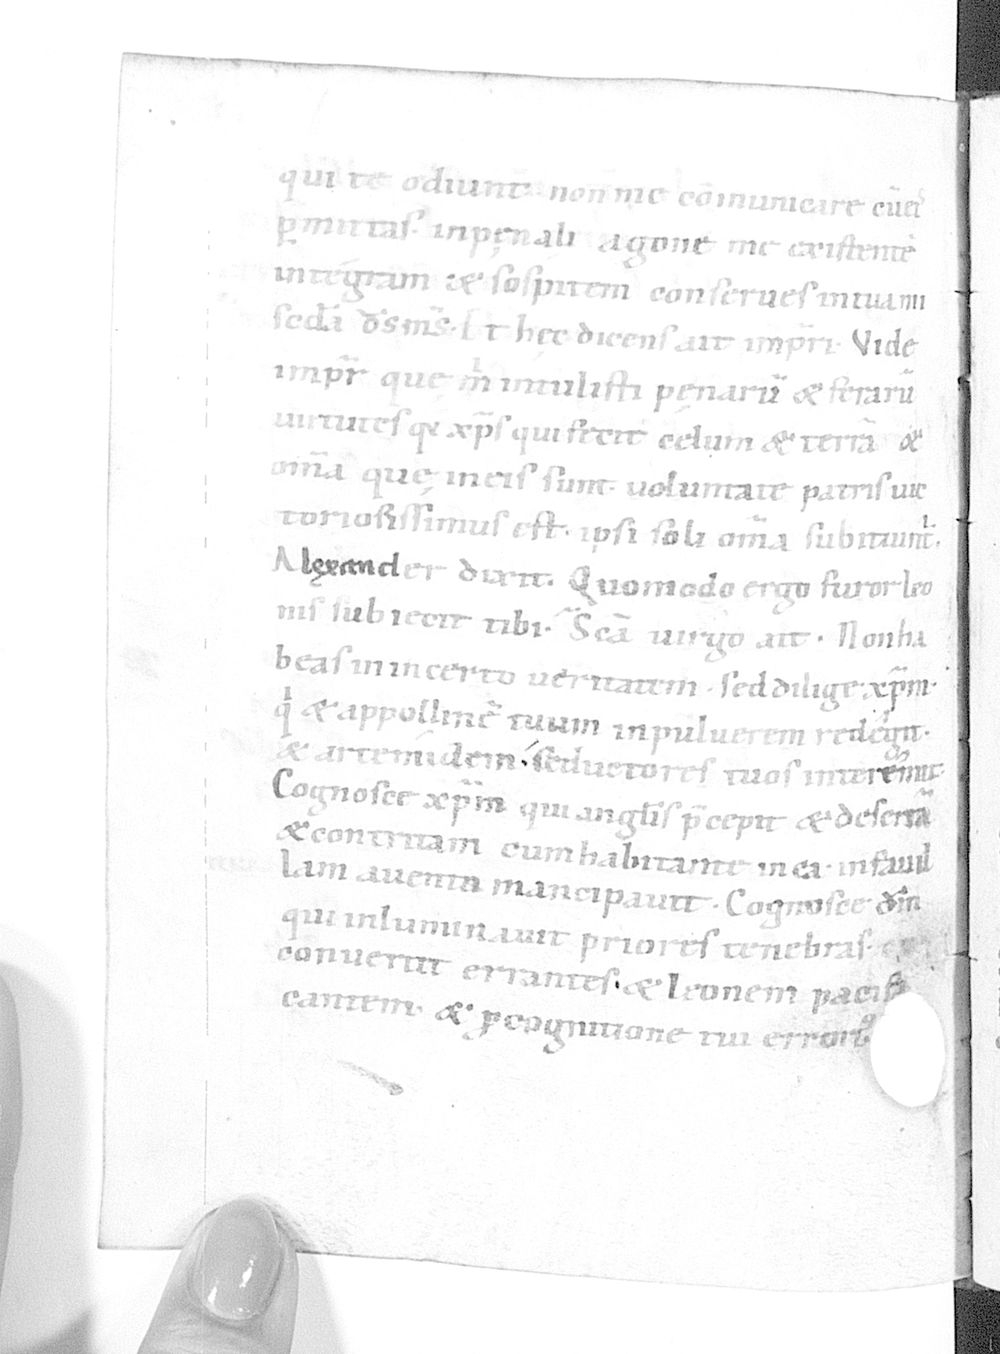 qui te odiunt. non me cōmunicare cū ei
p̱mittas. in pęnali agone me existentē
integram & sospitem conserues in tuam
scd̄a d̄s m̄s. Et hęc dicens ait imp̄ri. Vide
imp̄r quę m̄ intulisti pęnarū & ferarū
uirtutes xp̄s qui fecit celum & terrā &
om̄a quę in eis sunt. uoluntate patris uic
toriosissimus est. ipsi soli om̄a subitiunt̄.
Alęxander dixit. Quomodo ergo furor leo
nis subiecit tibi. Scā uirgo ait. Non ha
beas in incerto ueritatem. sed dilige xp̄m.
q & appollinē tuum in puluerem redegit.
& artemidem. seductores tuos interemit
Cognosce xp̄m qui angl̄is p̄cepit & desertā
& contritam cum habitante in ea. in fauil
lam auentin mancipauit. Cognosce dn̄m
qui inluminauit priores tenebras.
conuertit errantes. & leonem pacifi
cantem. & p̱ cognitione tui error